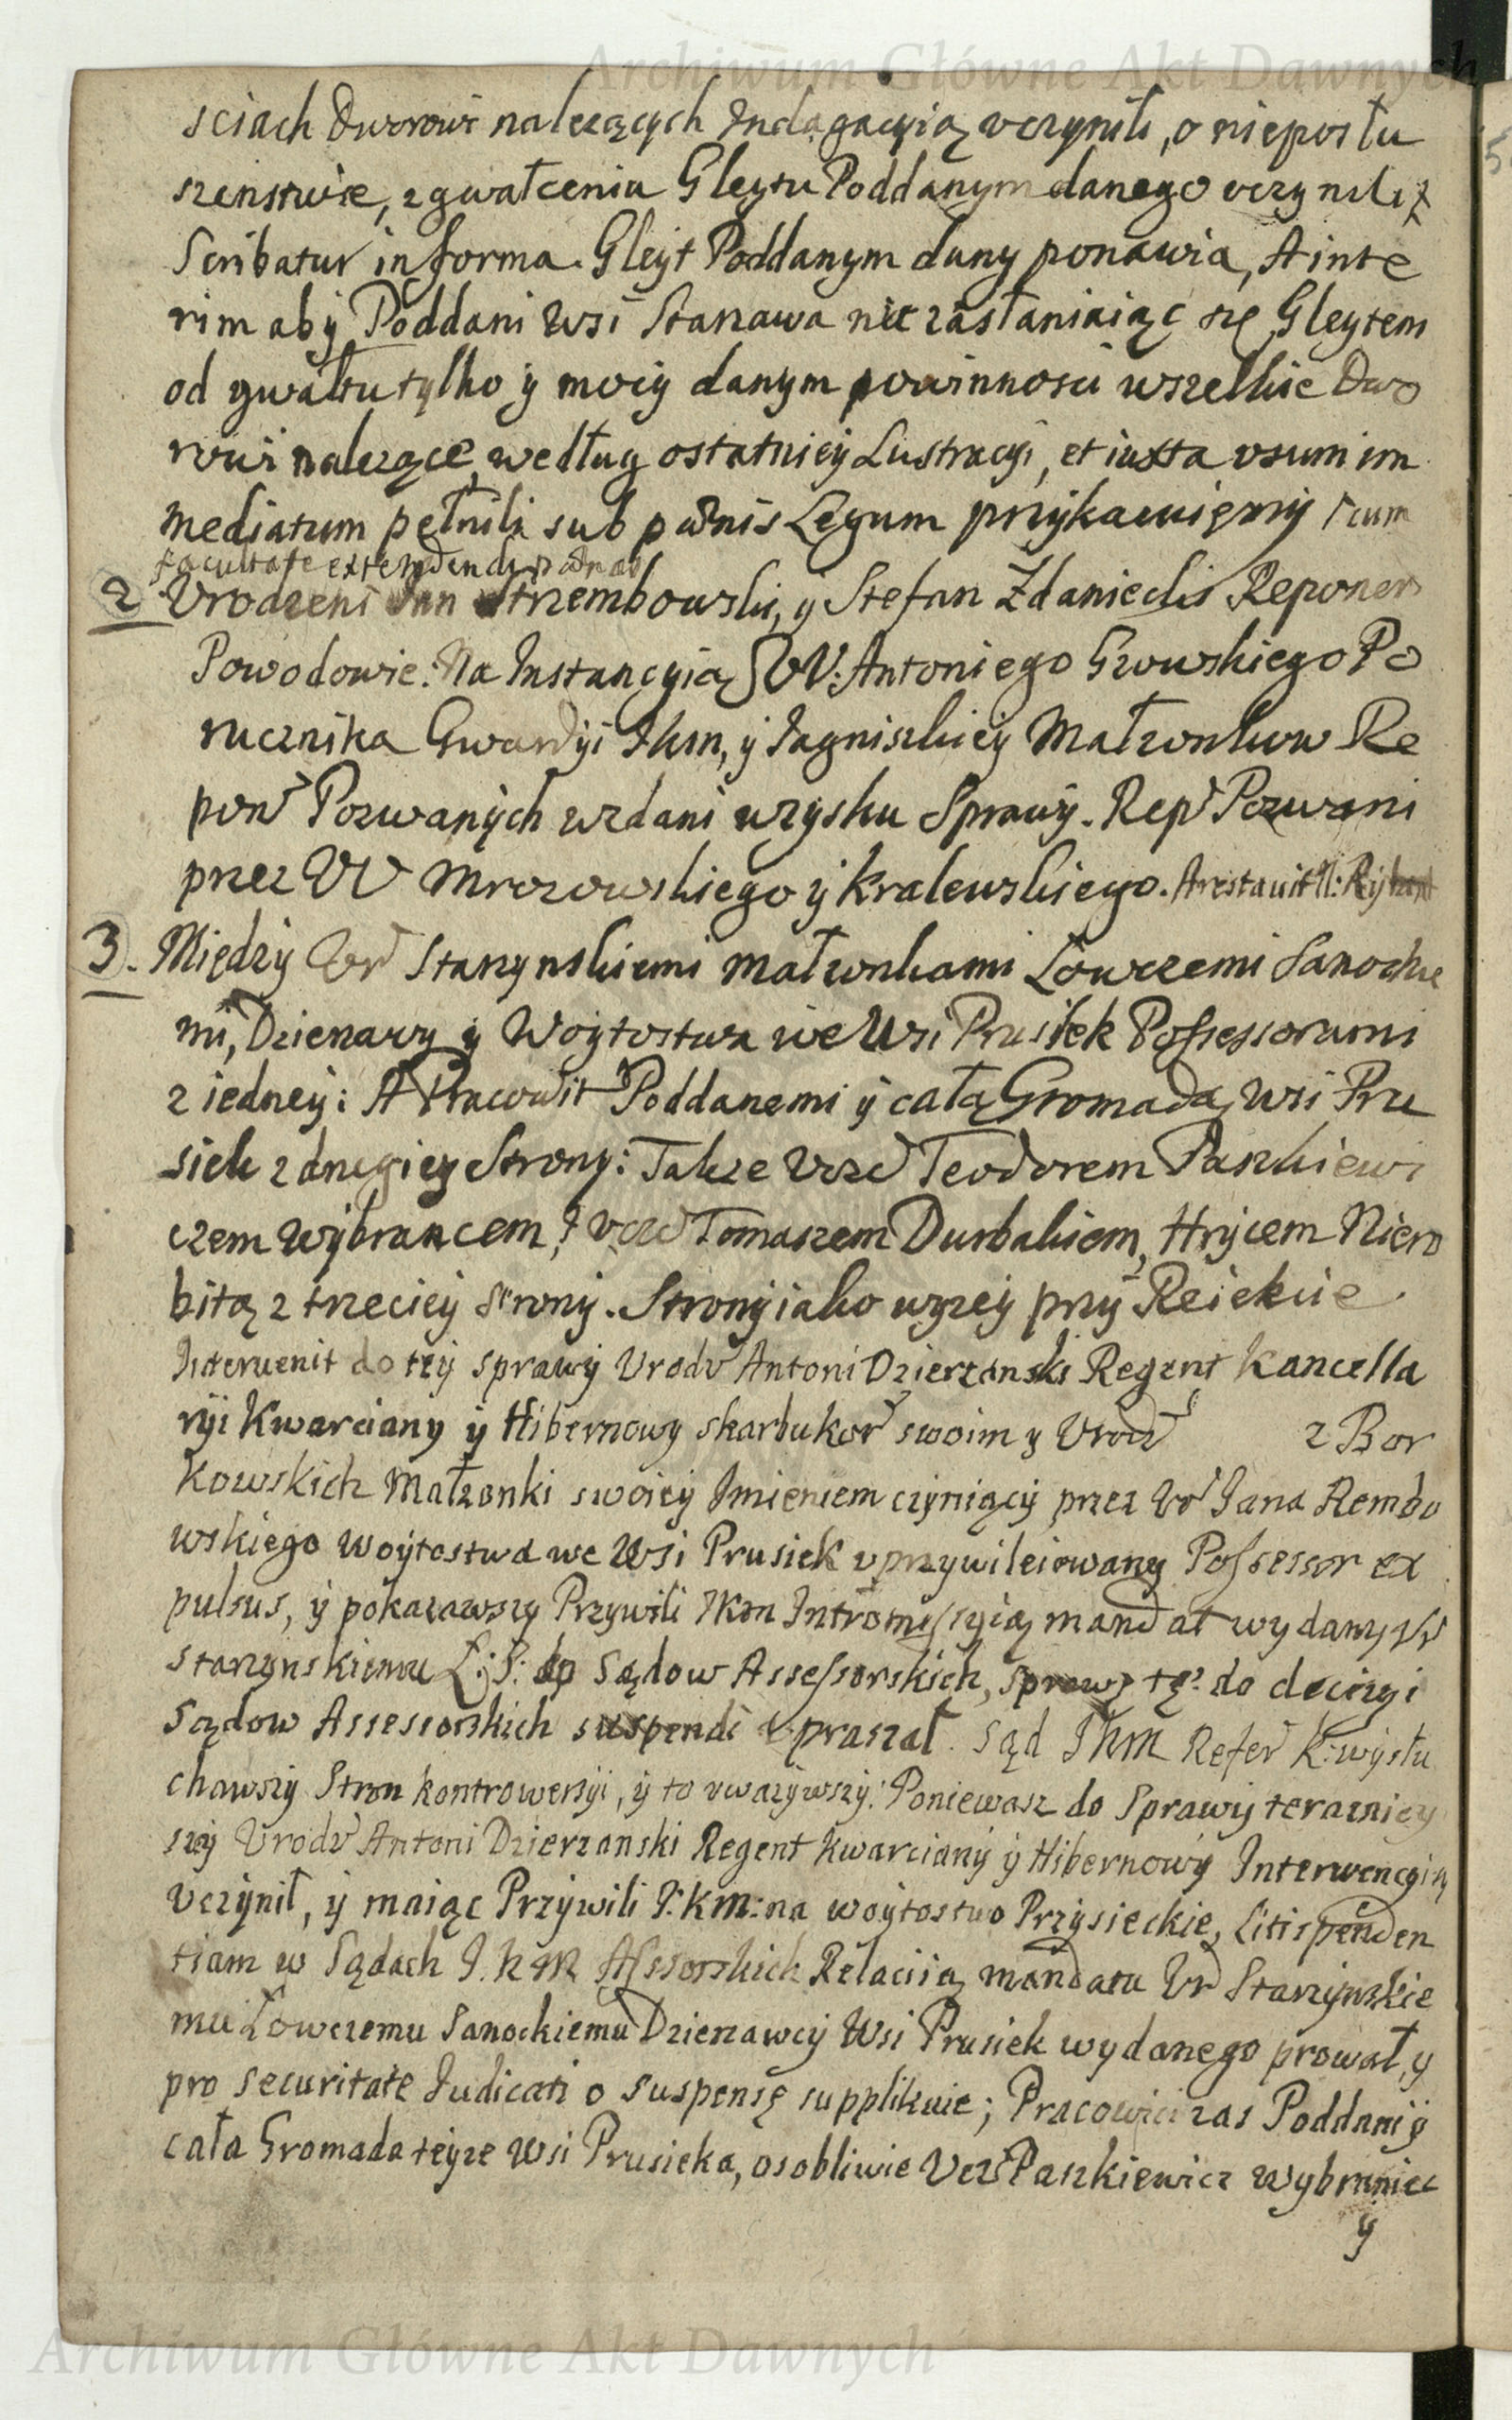 Archiwum Główne Akt Dawnych
sciach Dworowi nalezących Indagacyią vczynili, o nieposłu
szenstwie, zgwałcenia Gleytu Poddanym danego vczynili
Scribatur in forma. Gleyt Poddanym dany ponawia, A inte
rim aby Poddani wsi Starzawa nie zasłaniaiąc się Gleytem
od gwałtu tylko y mocy danym powinnosci wszelkie Dwo
rowi nalezące, według ostatniey Lustracyi, et iuxta vsum im
mediatum pełnili sub pænis Legum przykazuięmy cum
facultate extendendi pænas
2 Vrodzeni Jan Strzembowski, y Stefan Zdaniecki Reponen
Powodowie: Na Instancyią VV: Antoniego Gzowskiego Po
rucznika Gwardyi Jkm, y Jagniszkiey Małzonkow Re
pon Pozwanych wzdani w zysku Sprawy. Rep Pozwani
przez VV Mrozowskiego y Kralewskiego. Arestavit N:
3. Między Vr Starzynskiemi małzonkami Łowczemi Sanockie
mi, Dzierzawy y Woytostwa we Wsi Prusiek Possessorami
z iedney: A Pracowit Poddanemi y całą Gromadą Wsi Pru
siek z drugiey Strony: Takze Vczc Teodorem Paszkiewi
czem Wybrancem, Vczc Tomaszem Durbakiem, Hrycem Niero
bitą z trzeciey Strony. Strony iako wyzey przy Reiekcie.
Intervenit do tey sprawy Vrodz Antoni Dzierzanski Regent Kancella
ryi Kwarciany y Hibernowy skarbu kor swoim y Vrodz z Bor
kowskich Małzonki swoiey Imieniem czyniący przez Vr Jana Rembo
wskiego woytostwa we Wsi Prusiek vprzywileiowany Possessor ex
pulsus, y pokazawszy Przywili Jkm Intromissyią mandat wydany Vr
Starzynskiemu Ł: S: do Sądow Assessorskich, sprawę tę do decizyi
Sądow Assessorskich suspendi vpraszał. Sąd Jkm Refer K: wysłu
chawszy Stron kontrowersyi, y to vwazywszy: Poniewasz do Sprawy terazniey
szey Vrodz Antoni Dzierzanski Regent Kwarciany y Hibernowy Interwencyią
vczynił, y maiąc Przywili J: km: na woytostwo Przysieckie, Litispenden
tiam w Sądach J. K M Assessorskich Relaciią mandatu Vr Starzynskie
mu Łowczemu Sanockiemu Dzierzawcy Wsi Prusiek wydanego prował, y
pro securitate Iudicati o suspensę supplikuie; Pracowici zas Poddani y
cała Gromada teyze Wsi Prusieka, osobliwie Vcz Paszkiewicz wybraniec
y
Archiwum Główne Akt Dawnych